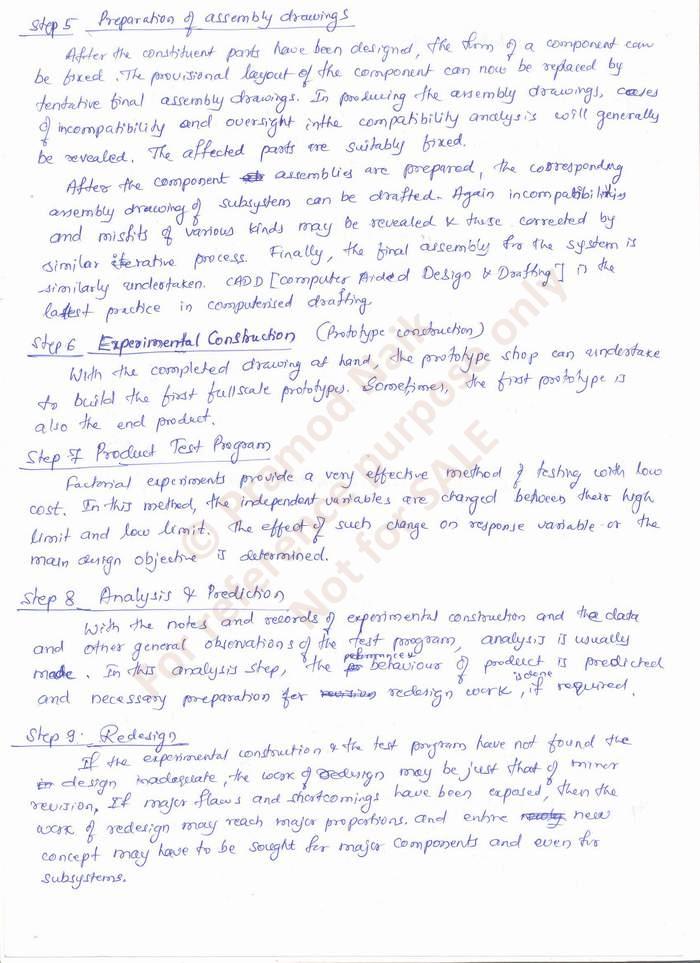 Step 5 Preparation of assembly drawings
After the constituent parts have been designed, the form of a component can
be fixed. The provisional layout of the component can now be replaced by
tentative final assembly drawings. In producing the assembly drawings, cases
of incompatibility and oversight in the compatibility analysis will generally
be revealed. The affected parts are suitably fixed.
After the component assemblies are prepared, the corresponding
assembly drawing of subsystem can be drafted. Again incompatibilities
and misfits of various kinds may be revealed & these corrected by
similar iterative process. Finally, the final assembly for the system is
similarly undertaken. CADD [Computer Aided Design & Drafting] is the
latest practice in computerised drafting.
Step 6 Experimental Construction (Prototype construction)
With the completed drawing at hand, the prototype shop can undertake
to build the first fullscale prototypes. Sometimes, the first prototype is
also the end product.
Step 7 Product Test Program
Factorial experiments provide a very effective method of testing with low
cost. In this method, the independent variables are changed between their high
limit and low limit. The effect of such change on response variable or the
main design objective is determined.
Step 8 Analysis & Prediction
With the notes and records of experimental construction and the data
and other general observations of the test program, analysis is usually
made. In this analysis step, the performance & behaviour of product is predicted
and necessary preparation for redesign work is done, if required.
Step 9. Redesign
If the experimental construction & the test program have not found the
design inadequate, the work of redesign may be just that of miner
revision, If major flaws and shortcomings have been exposed, then the
work of redesign may reach major proportions. and entire new
concept may have to be sought for major components and even for
subsystems.
© Pramod Naik
For reference purpose only
Not for SALE